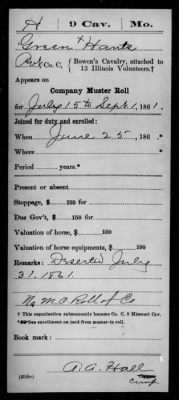 H | 9 Cav. | Mo.
Green * Hantz
Pvt., Co. C, { Bowen's Cavalry, attached to
13 Illinois Volunteers.†
Appears on
Company Muster Roll
for July 15 to Sept 1, 1861.
Joined for duty and enrolled:
When June 25, 186 .*
Where *
Period years.*
Present or absent
Stoppage, $ 100 for
Due Gov't, $ 100 for
Valuation of horse, $ 100
Valuation of horse equipments, $ 100
Remarks: Deserted July
31. 1861.
No M O Roll of Co
† This organization subsequently became Co. C, 9 Missouri Cav.
*See enrollment on card from muster-in roll.
Book mark:
A. A. Hall
(358c) Copyist.